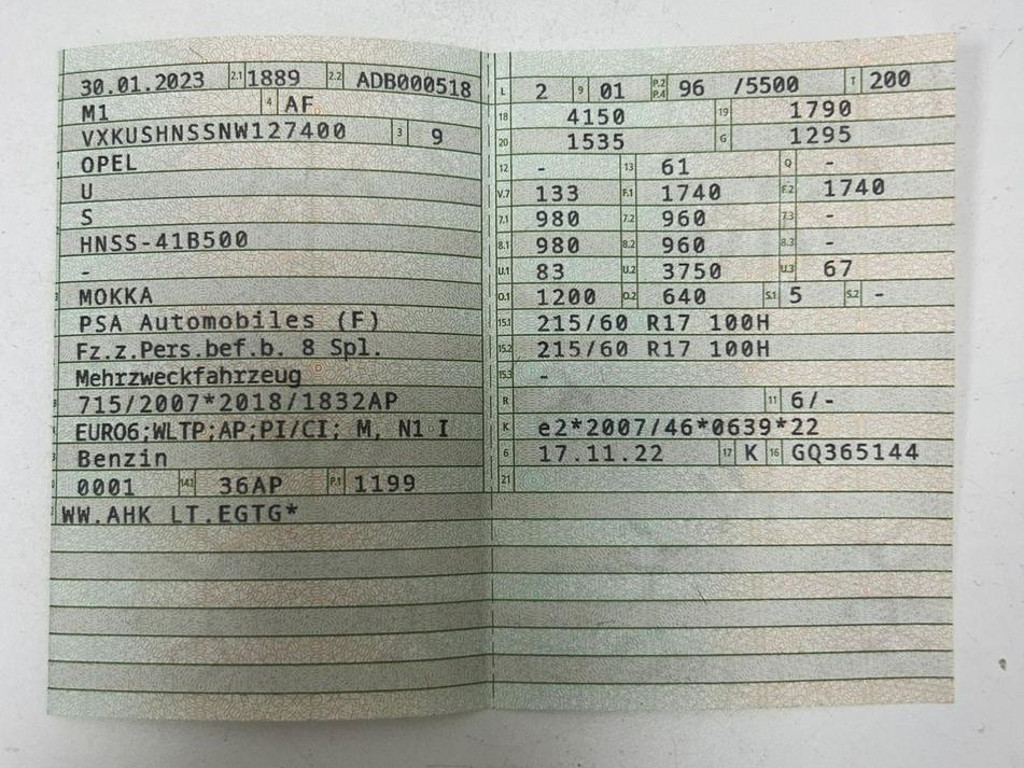 30.01.2023 2.1 1889 2.2 ADB000518
M1 4 AF
VXKUSHNSSNW127400 3 9
OPEL
U
S
HNSS-41B500
-
MOKKA
PSA Automobiles (F)
Fz.z.Pers.bef.b. 8 Spl.
Mehrzweckfahrzeug
715/2007*2018/1832AP
EURO6;WLTP;AP;PI/CI; M, N1 I
Benzin
0001 14.1 36AP P.1 1199
WW.AHK LT.EGTG*
L 2 9 01 P.2 P.4 96 /5500 T 200
18 4150 19 1790
20 1535 G 1295
12 - 13 61 Q -
V.7 133 F.1 1740 F.2 1740
7.1 980 7.2 960 7.3 -
8.1 980 8.2 960 8.3 -
U.1 83 U.2 3750 U.3 67
O.1 1200 O.2 640 S.1 5 S.2 -
15.1 215/60 R17 100H
15.2 215/60 R17 100H
15.3 -
R 11 6/-
K e2*2007/46*0639*22
6 17.11.22 17 K 16 GQ365144
21